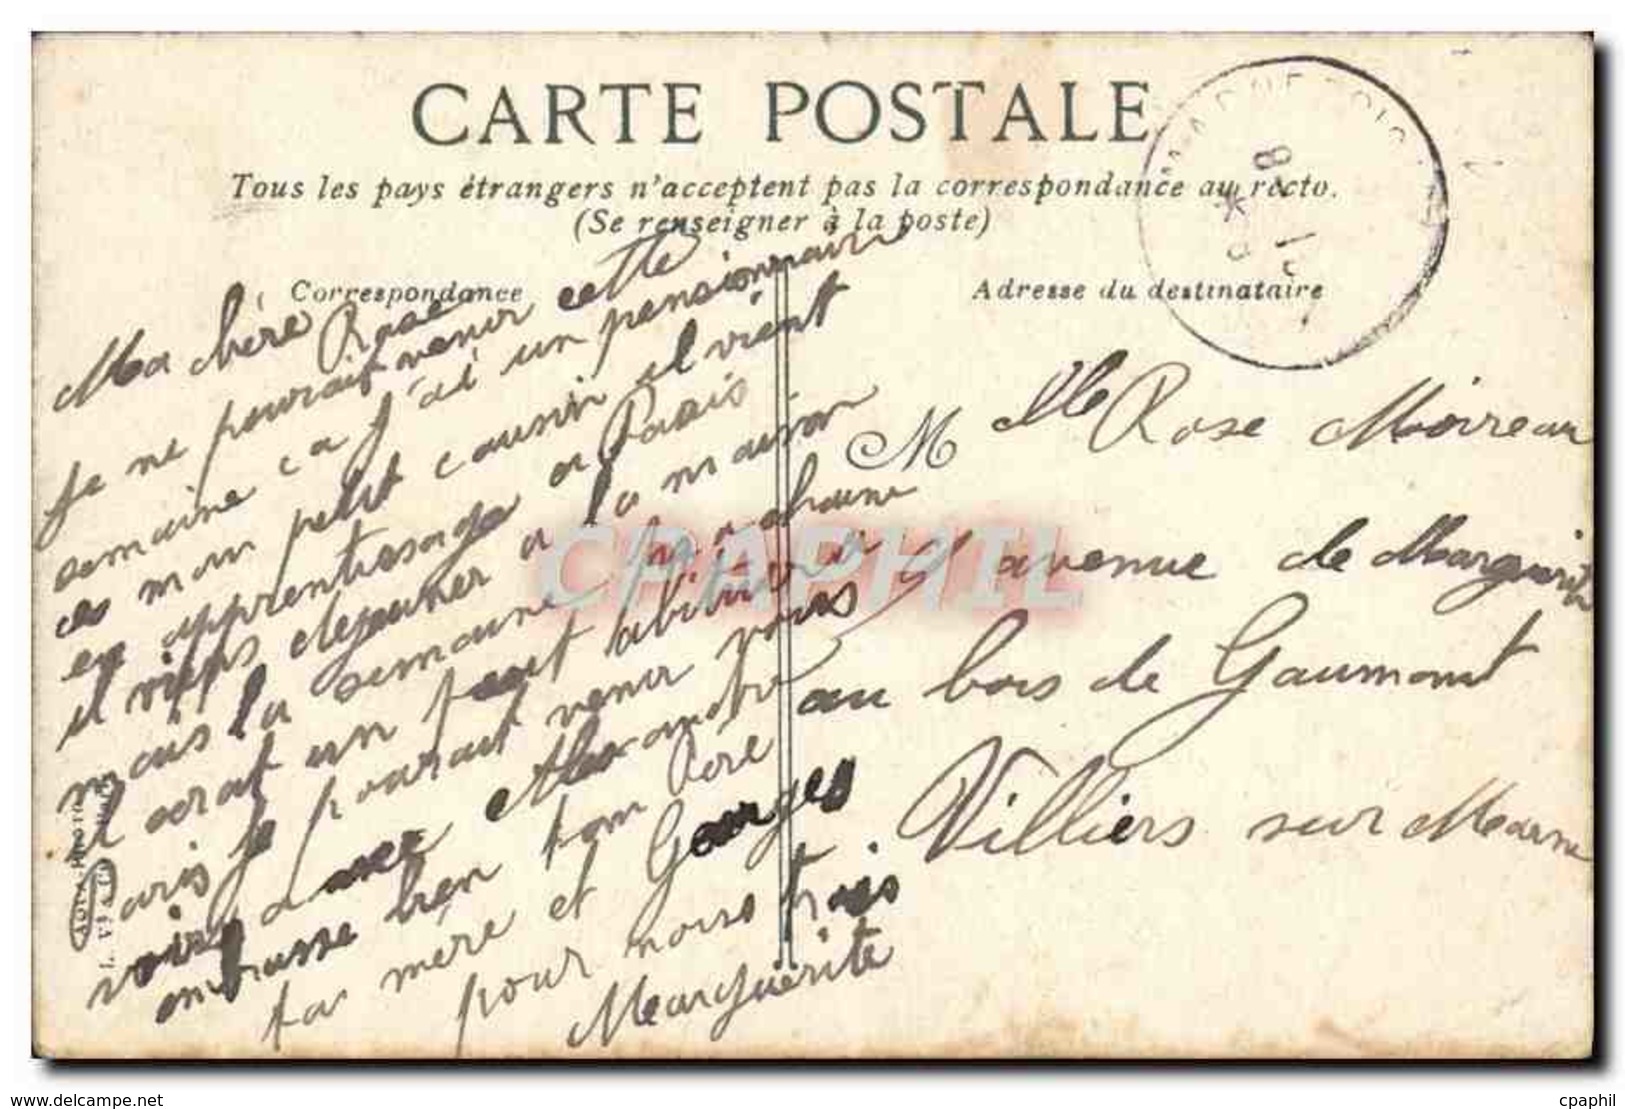 CARTE POSTALE
Tous les pays étrangers n'acceptent pas la correspondance au recto.
(Se renseigner à la poste)
Correspondance
Adresse du destinataire
Ma chéré Rose
Je ne pourait venir cette
semaine ca j'ai un pensionnaire
ces mon petit cousin il vient
en apprentisage a Paris
il vien dejeuner a la maison
mais la semaine prochaine
il serat un peut abituer a
Paris je pourait venir vous
voire avec Alexandre
embrasse bien ton Pere
ta mere et Georges
pour nous trois.
Marguérite
M lle Rose Moireau
9 avenue de Marguerite
au bois de Gaumont
Villiers sur Marne
8 - 1
CPAPHIL
www.delcampe.net
cpaphil